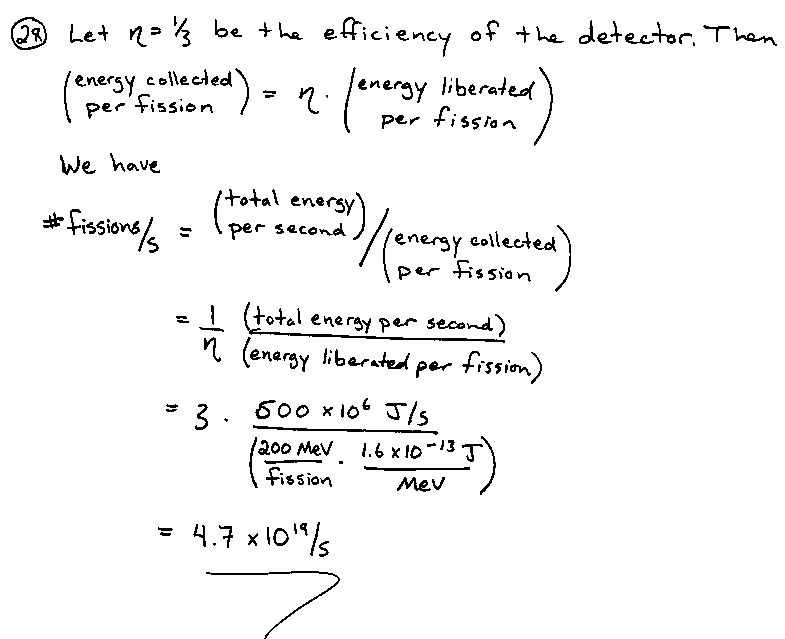 28 Let η = 1/3 be the efficiency of the detector. Then
(energy collected per fission) = η · (energy liberated per fission)
We have
# fissions/s = (total energy per second) / (energy collected per fission)
= 1/η (total energy per second) / (energy liberated per fission)
= 3 · 500 × 10⁶ J/s / (200 MeV/fission · 1.6 × 10⁻¹³ J/MeV)
= 4.7 × 10¹⁹/s